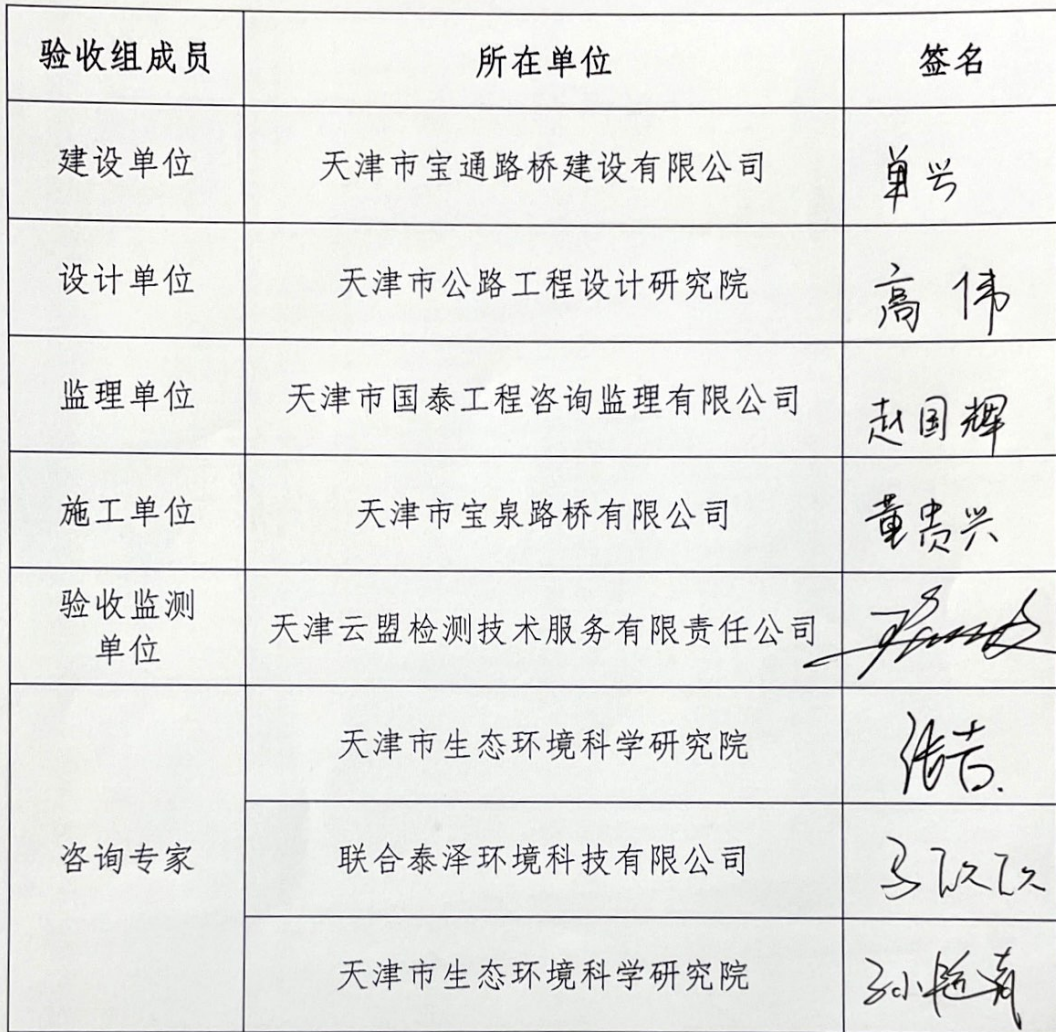 验收组成员 所在单位 签名
建设单位 天津市宝通路桥建设有限公司 单兴
设计单位 天津市公路工程设计研究院 高伟
监理单位 天津市国泰工程咨询监理有限公司 赵国辉
施工单位 天津市宝泉路桥有限公司 董贵兴
验收监测
单位
天津云盟检测技术服务有限责任公司
咨询专家
天津市生态环境科学研究院
联合泰泽环境科技有限公司
天津市生态环境科学研究院